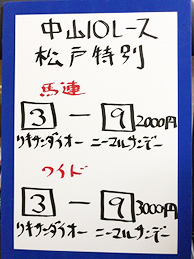 中山10レース
松戸特別
馬連
3 - 9 2000円
ツキサンダイオー ニーマルサンデー
ワイド
3 - 9 3000円
ツキサンダイオー ニーマルサンデー